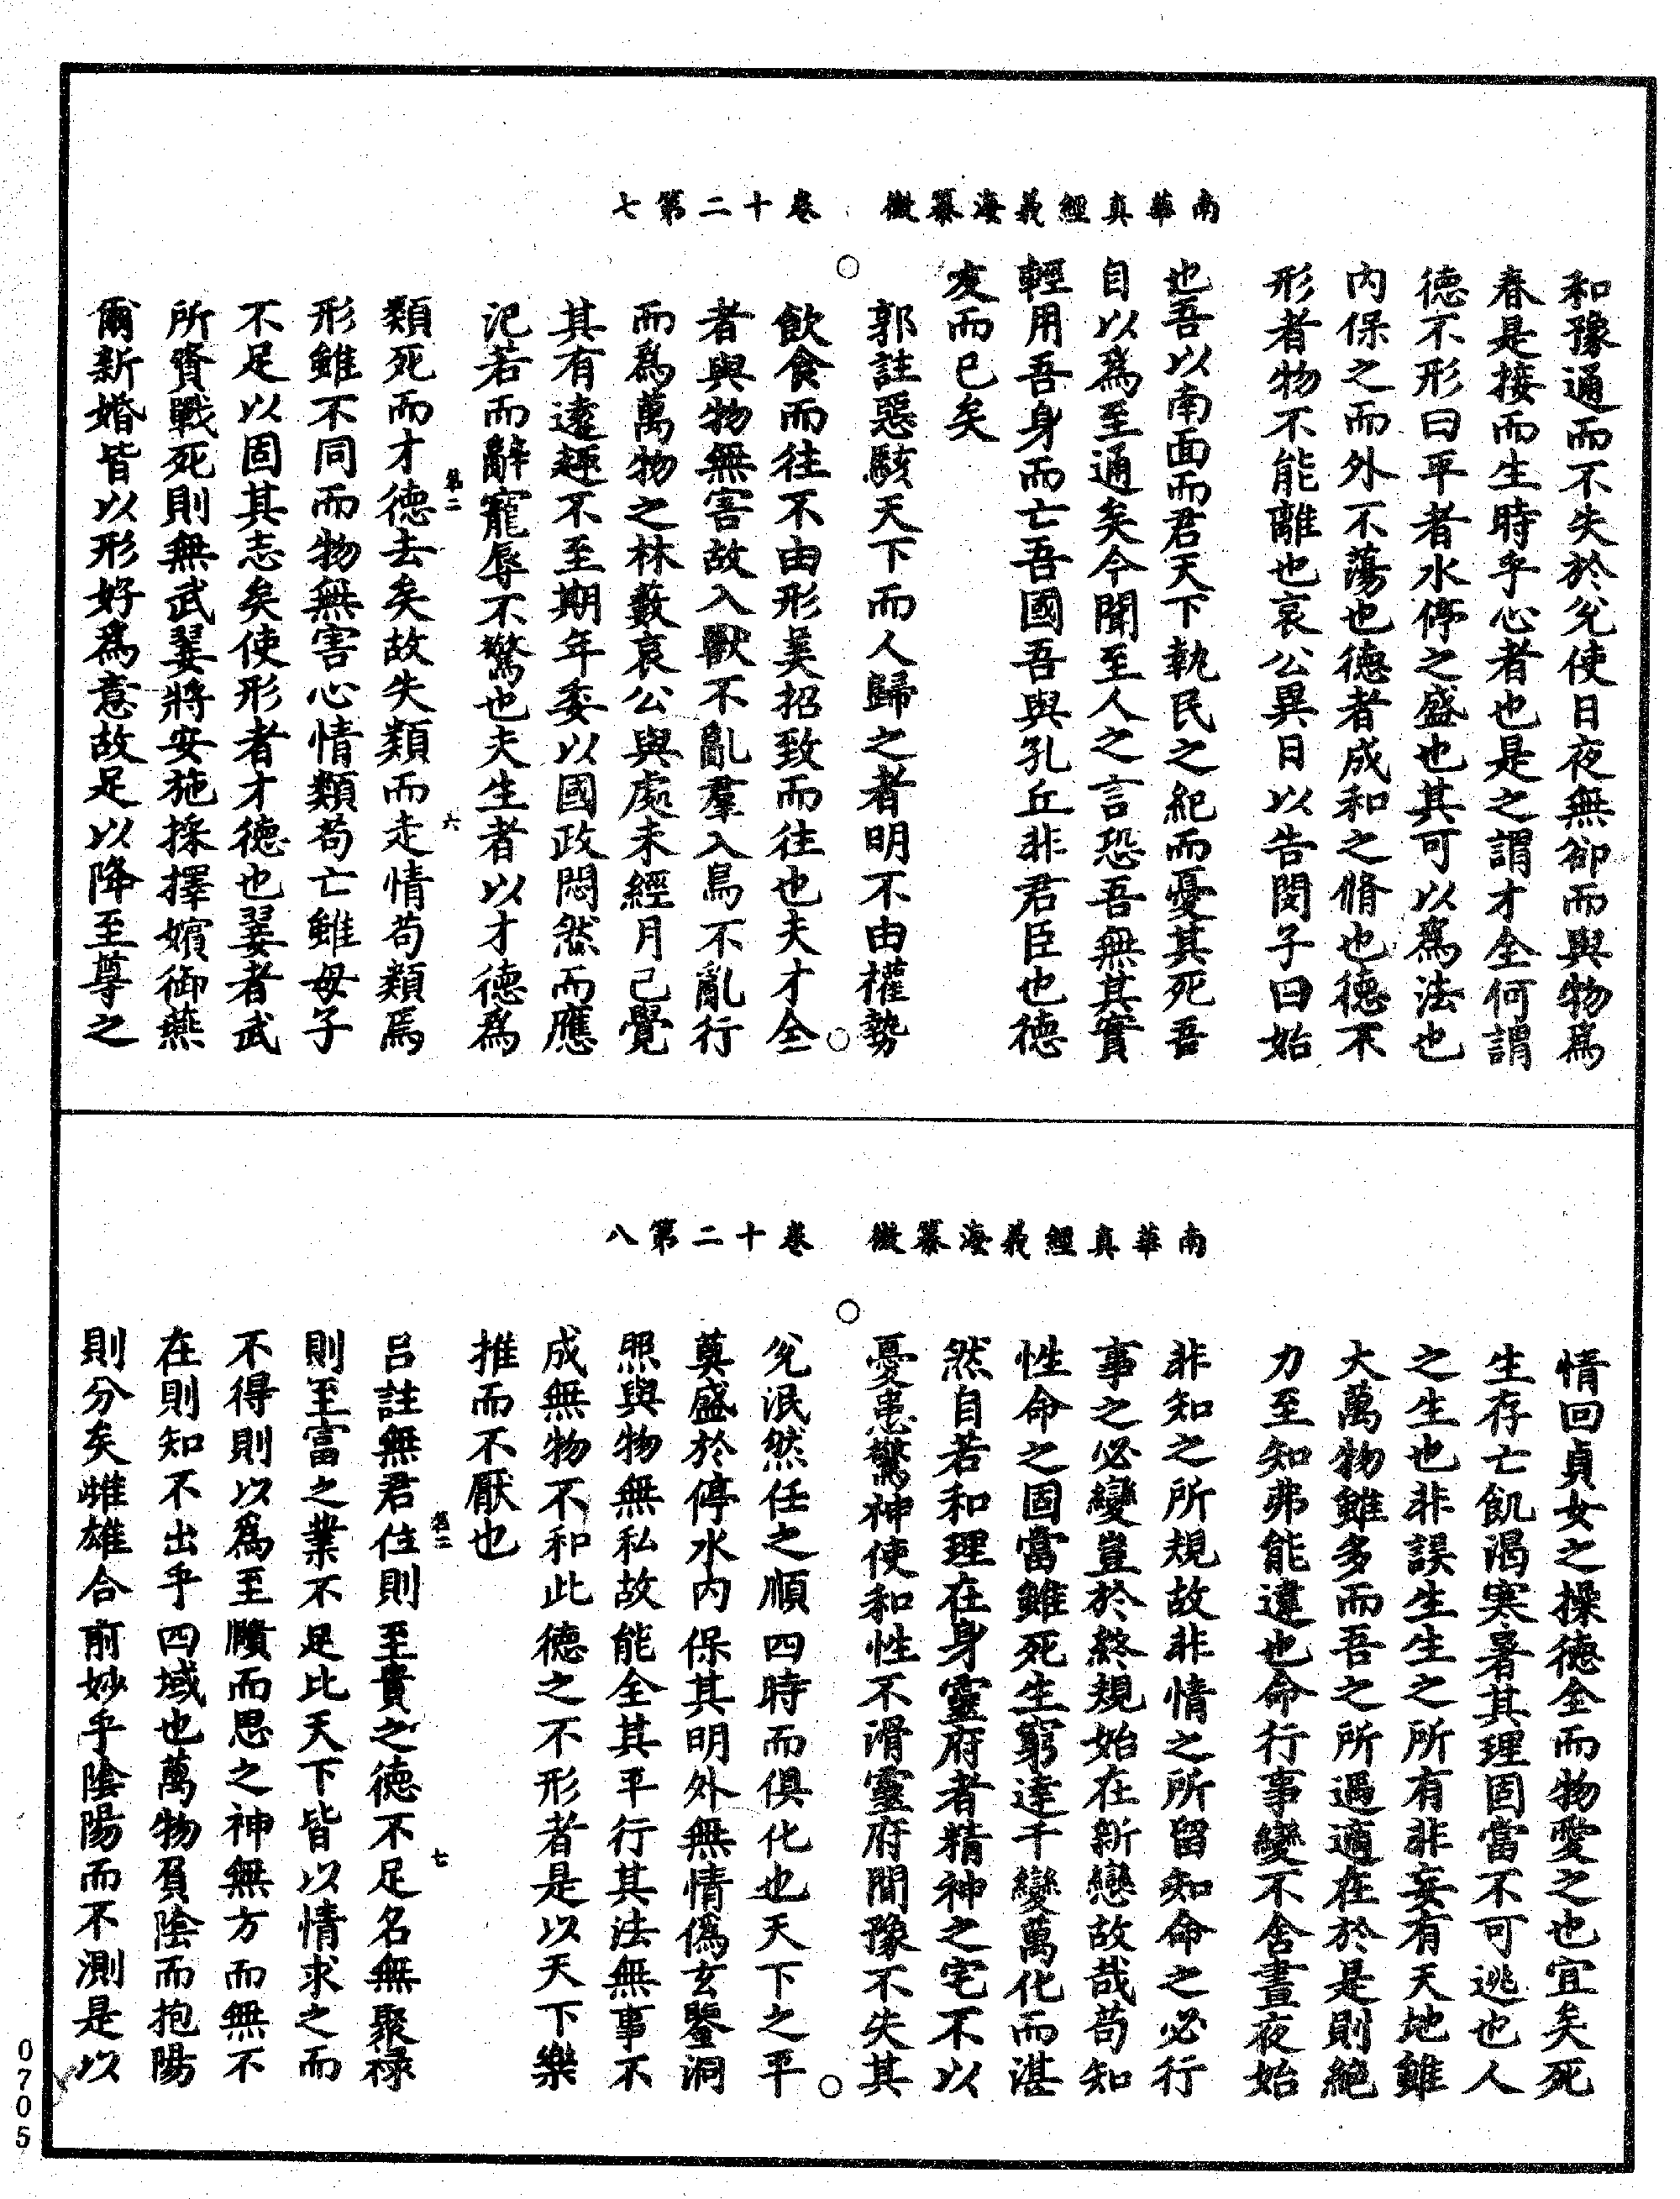 南華真經義海纂微　卷十二第七
和豫通而不失於兊使日夜無卻而與物爲
春是接而生時乎心者也是之謂才全何謂
德不形曰平者水停之盛也其可以爲法也
內保之而外不蕩也德者成和之脩也德不
形者物不能離也哀公異日以告閔子曰始
也吾以南面而君天下執民之紀而憂其死吾
自以爲至通矣今聞至人之言恐吾無其實
輕用吾身而亡吾國吾與孔丘非君臣也德
友而已矣
○
郭註惡駭天下而人歸之者明不由權勢
飲食而往不由形美招致而往也夫才全○
者與物無害故入獸不亂羣入鳥不亂行
而爲萬物之林藪哀公與處未經月已覺
其有遠趣不至期年委以國政悶然而應
氾若而辭寵辱不驚也夫生者以才德爲
第二　六
類死而才德去矣故失類而走情苟類焉
形雖不同而物無害心情類苟亡雖母子
不足以固其志矣使形者才德也翣者武
所資戰死則無武翣將安施採擇嬪御燕
爾新婚皆以形好爲意故足以降至尊之
南華真經義海纂微　卷十二第八
情回貞女之操德全而物愛之也宜矣死
生存亡飢渴寒暑其理固當不可逃也人
之生也非誤生生之所有非妄有天地雖
大萬物雖多而吾之所遇適在於是則絕
力至知弗能違也命行事變不舍晝夜始
非知之所規故非情之所留知命之必行
事之必變豈於終規始在新戀故哉苟知
性命之固當雖死生窮達千變萬化而湛
然自若和理在身靈府者精神之宅不以
憂患驚神使和性不滑靈府閒豫不失其
○
兊泯然任之順四時而俱化也天下之平○
莫盛於停水內保其明外無情僞玄鑒洞
照與物無私故能全其平行其法無事不
成無物不和此德之不形者是以天下樂
推而不厭也
第二　七
呂註無君住則至貴之德不足名無聚祿
則至富之業不足比天下皆以情求之而
不得則以爲至賾而思之神無方而無不
在則知不出乎四域也萬物負陰而抱陽
則分矣雌雄合前妙乎陰陽而不測是以
0705